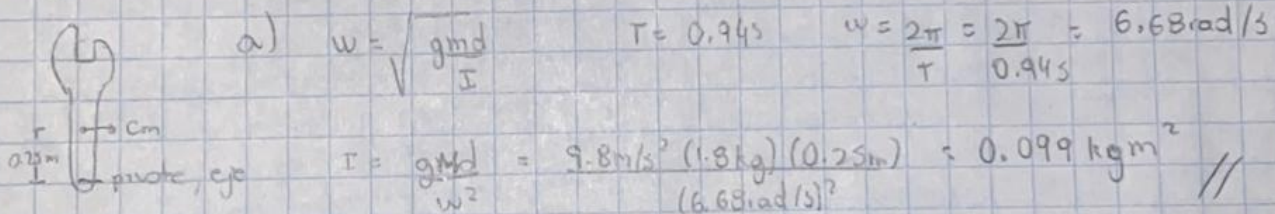 a) w = √(gmd/I)   T = 0.94s   w = 2π/T = 2π/0.94s = 6.68rad/s
cm
0.25m
pivote, eje
I = gmd/w² = 9.8m/s² (1.8kg)(0.25m)/(6.68rad/s)² = 0.099 kgm² //